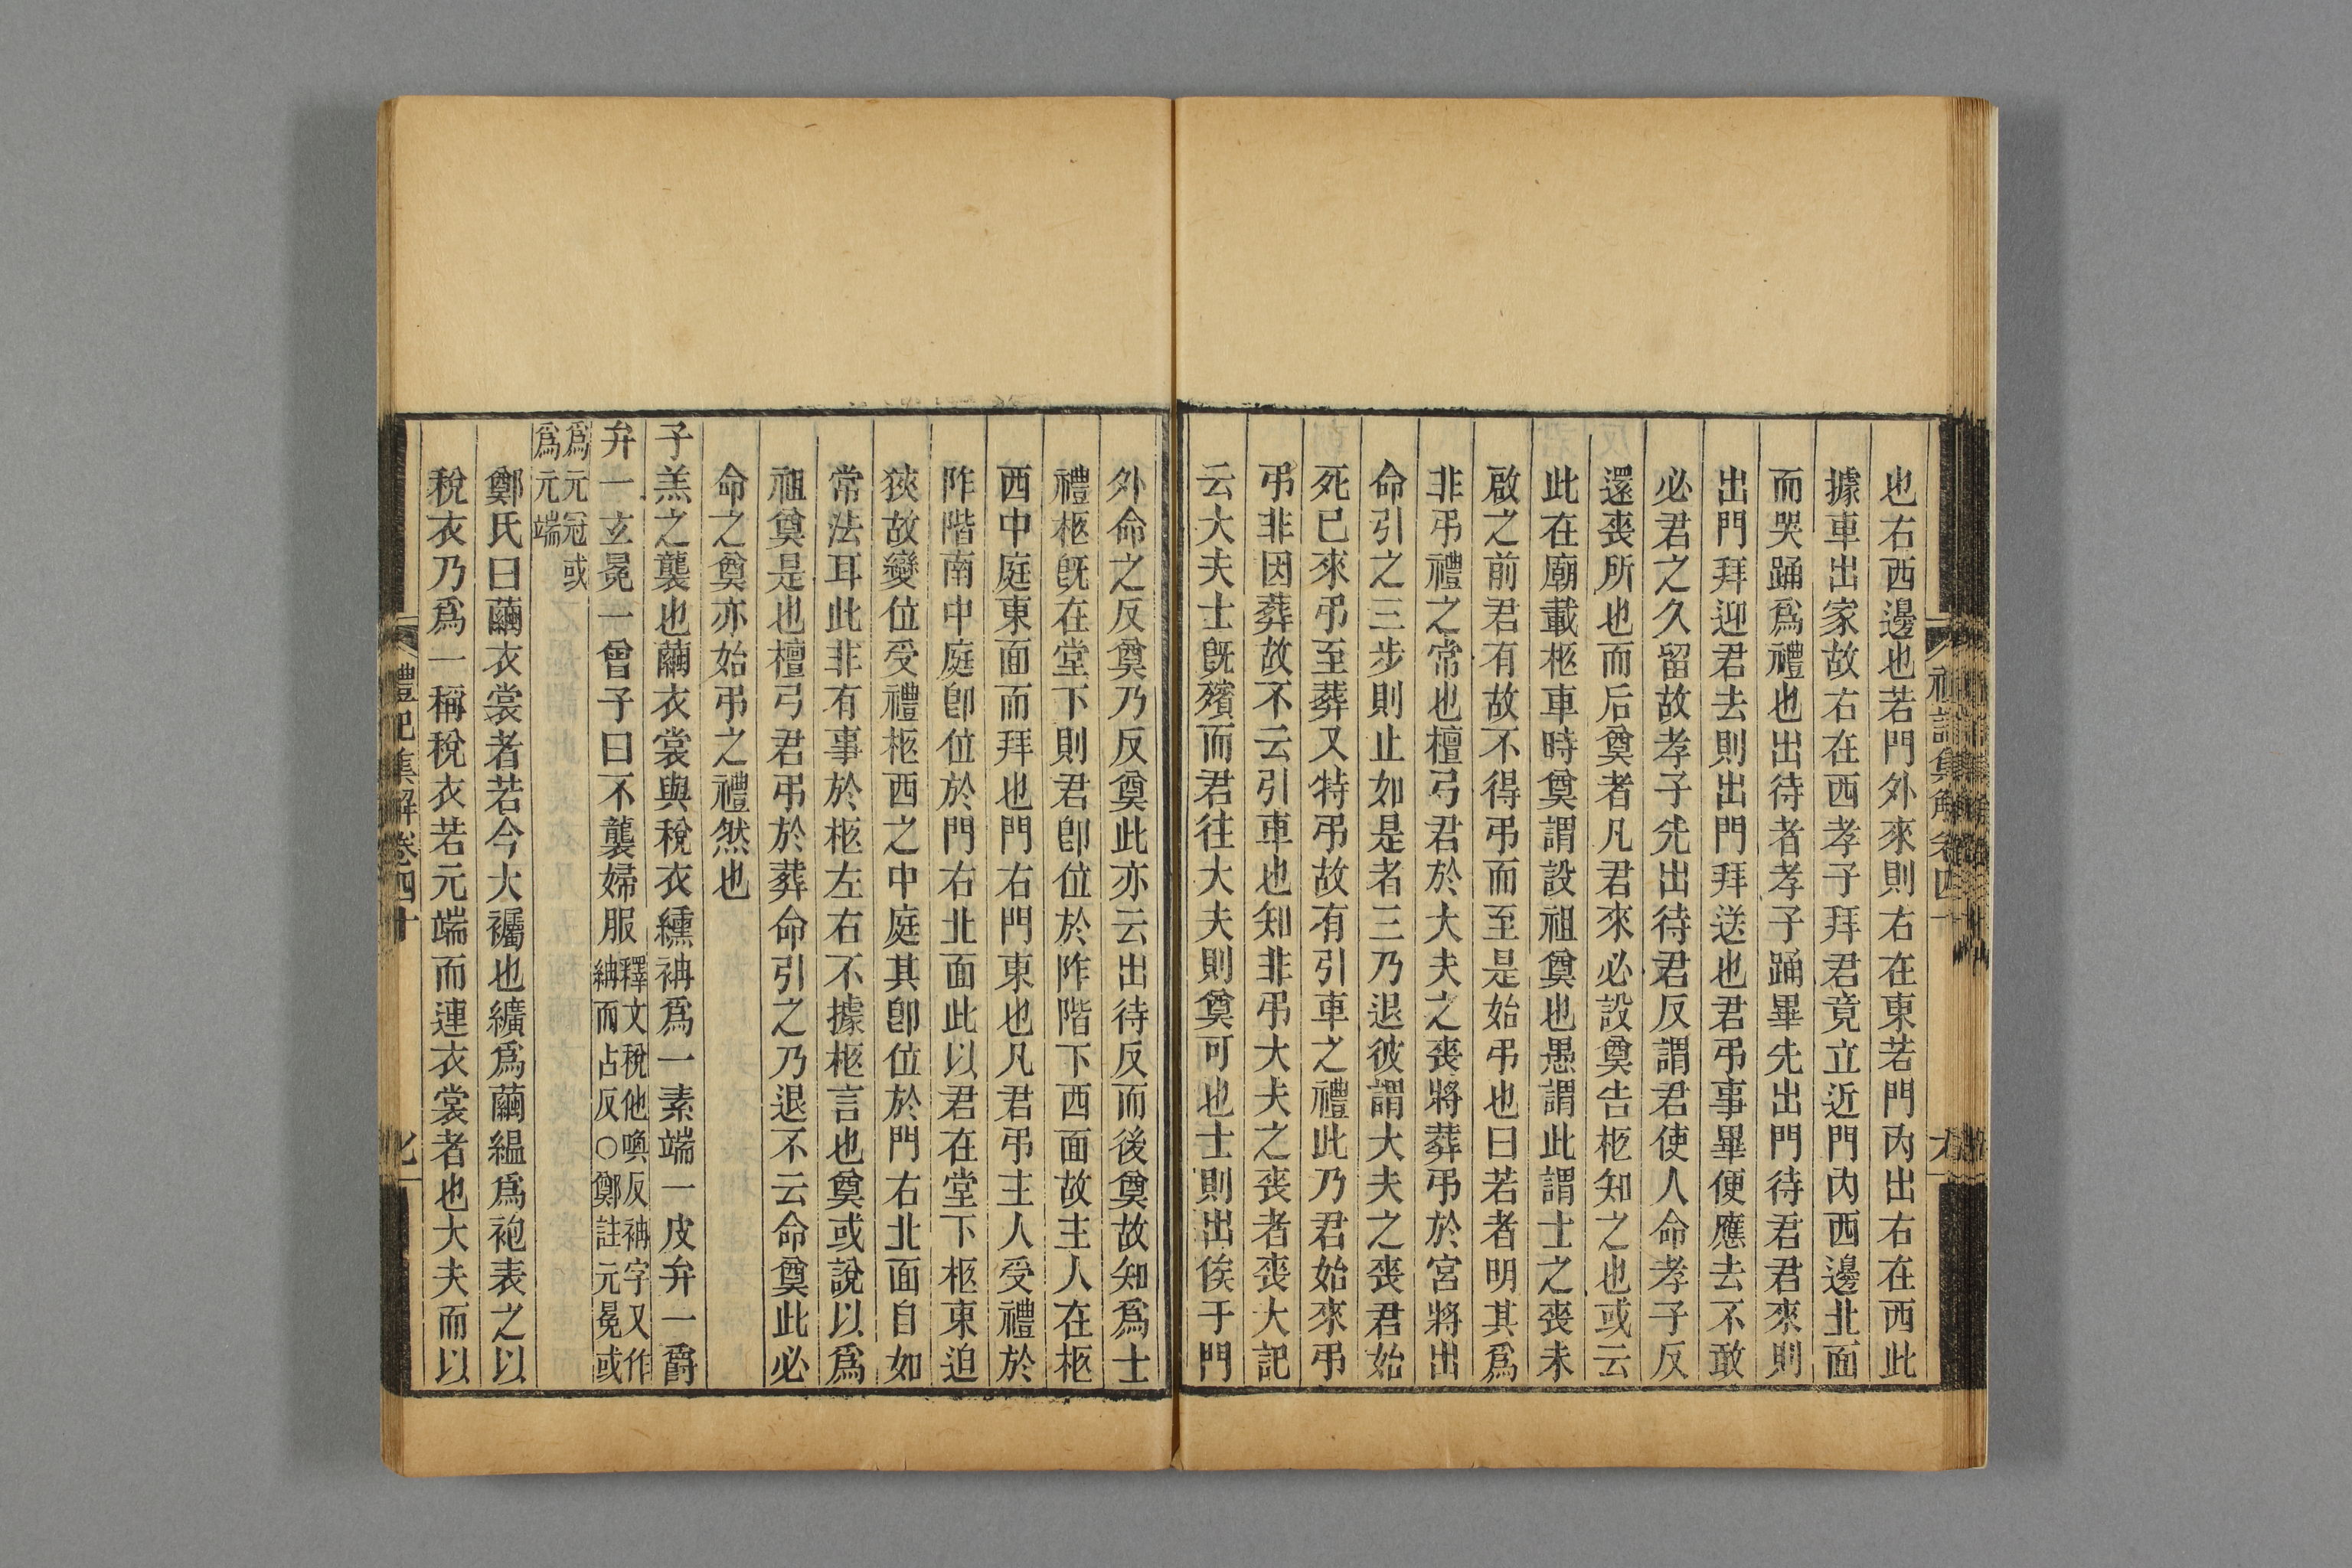 也右西邊也若門外來則右在東若門內出右在西此
據車出家故右在西孝子拜君竟立近門內西邊北面
而哭踊爲禮也出待者孝子踊畢先出門待君君來則
出門拜迎君去則出門拜送也君弔事畢便應去不敢
必君之久留故孝子先出待君反謂君使人命孝子反
還喪所也而后奠者凡君來必設奠告柩知之也或云
此在廟載柩車時奠謂設祖奠也愚謂此謂士之喪未
啟之前君有故不得弔而至是始弔也曰若者明其爲
非弔禮之常也檀弓君於大夫之喪將葬弔於宮將出
命引之三步則止如是者三乃退彼謂大夫之喪君始
死已來弔至葬又特弔故有引車之禮此乃君始來弔
弔非因葬故不云引車也知非弔大夫之喪者喪大記
云大夫士旣殯而君往大夫則奠可也士則出俟于門
外命之反奠乃反奠此亦云出待反而後奠故知爲士
禮柩旣在堂下則君卽位於阼階下西面故主人在柩
西中庭東面而拜也門右門東也凡君弔主人受禮於
阼階南中庭卽位於門右北面此以君在堂下柩東迫
狹故變位受禮柩西之中庭其卽位於門右北面自如
常法耳此非有事於柩左右不據柩言也奠或說以爲
祖奠是也檀弓君弔於葬命引之乃退不云命奠此必
命之奠亦始弔之禮然也
子羔之襲也繭衣裳與稅衣纁袡爲一素端一皮弁一爵
弁一玄冕一曾子曰不襲婦服釋文稅他喚反袡字又作
緟而占反○鄭註元冕或
爲元冠或
爲元端
鄭氏曰繭衣裳者若今大襡也纊爲繭縕爲袍表之以
稅衣乃爲一稱稅衣若元端而連衣裳者也大夫而以
禮記集解卷四十